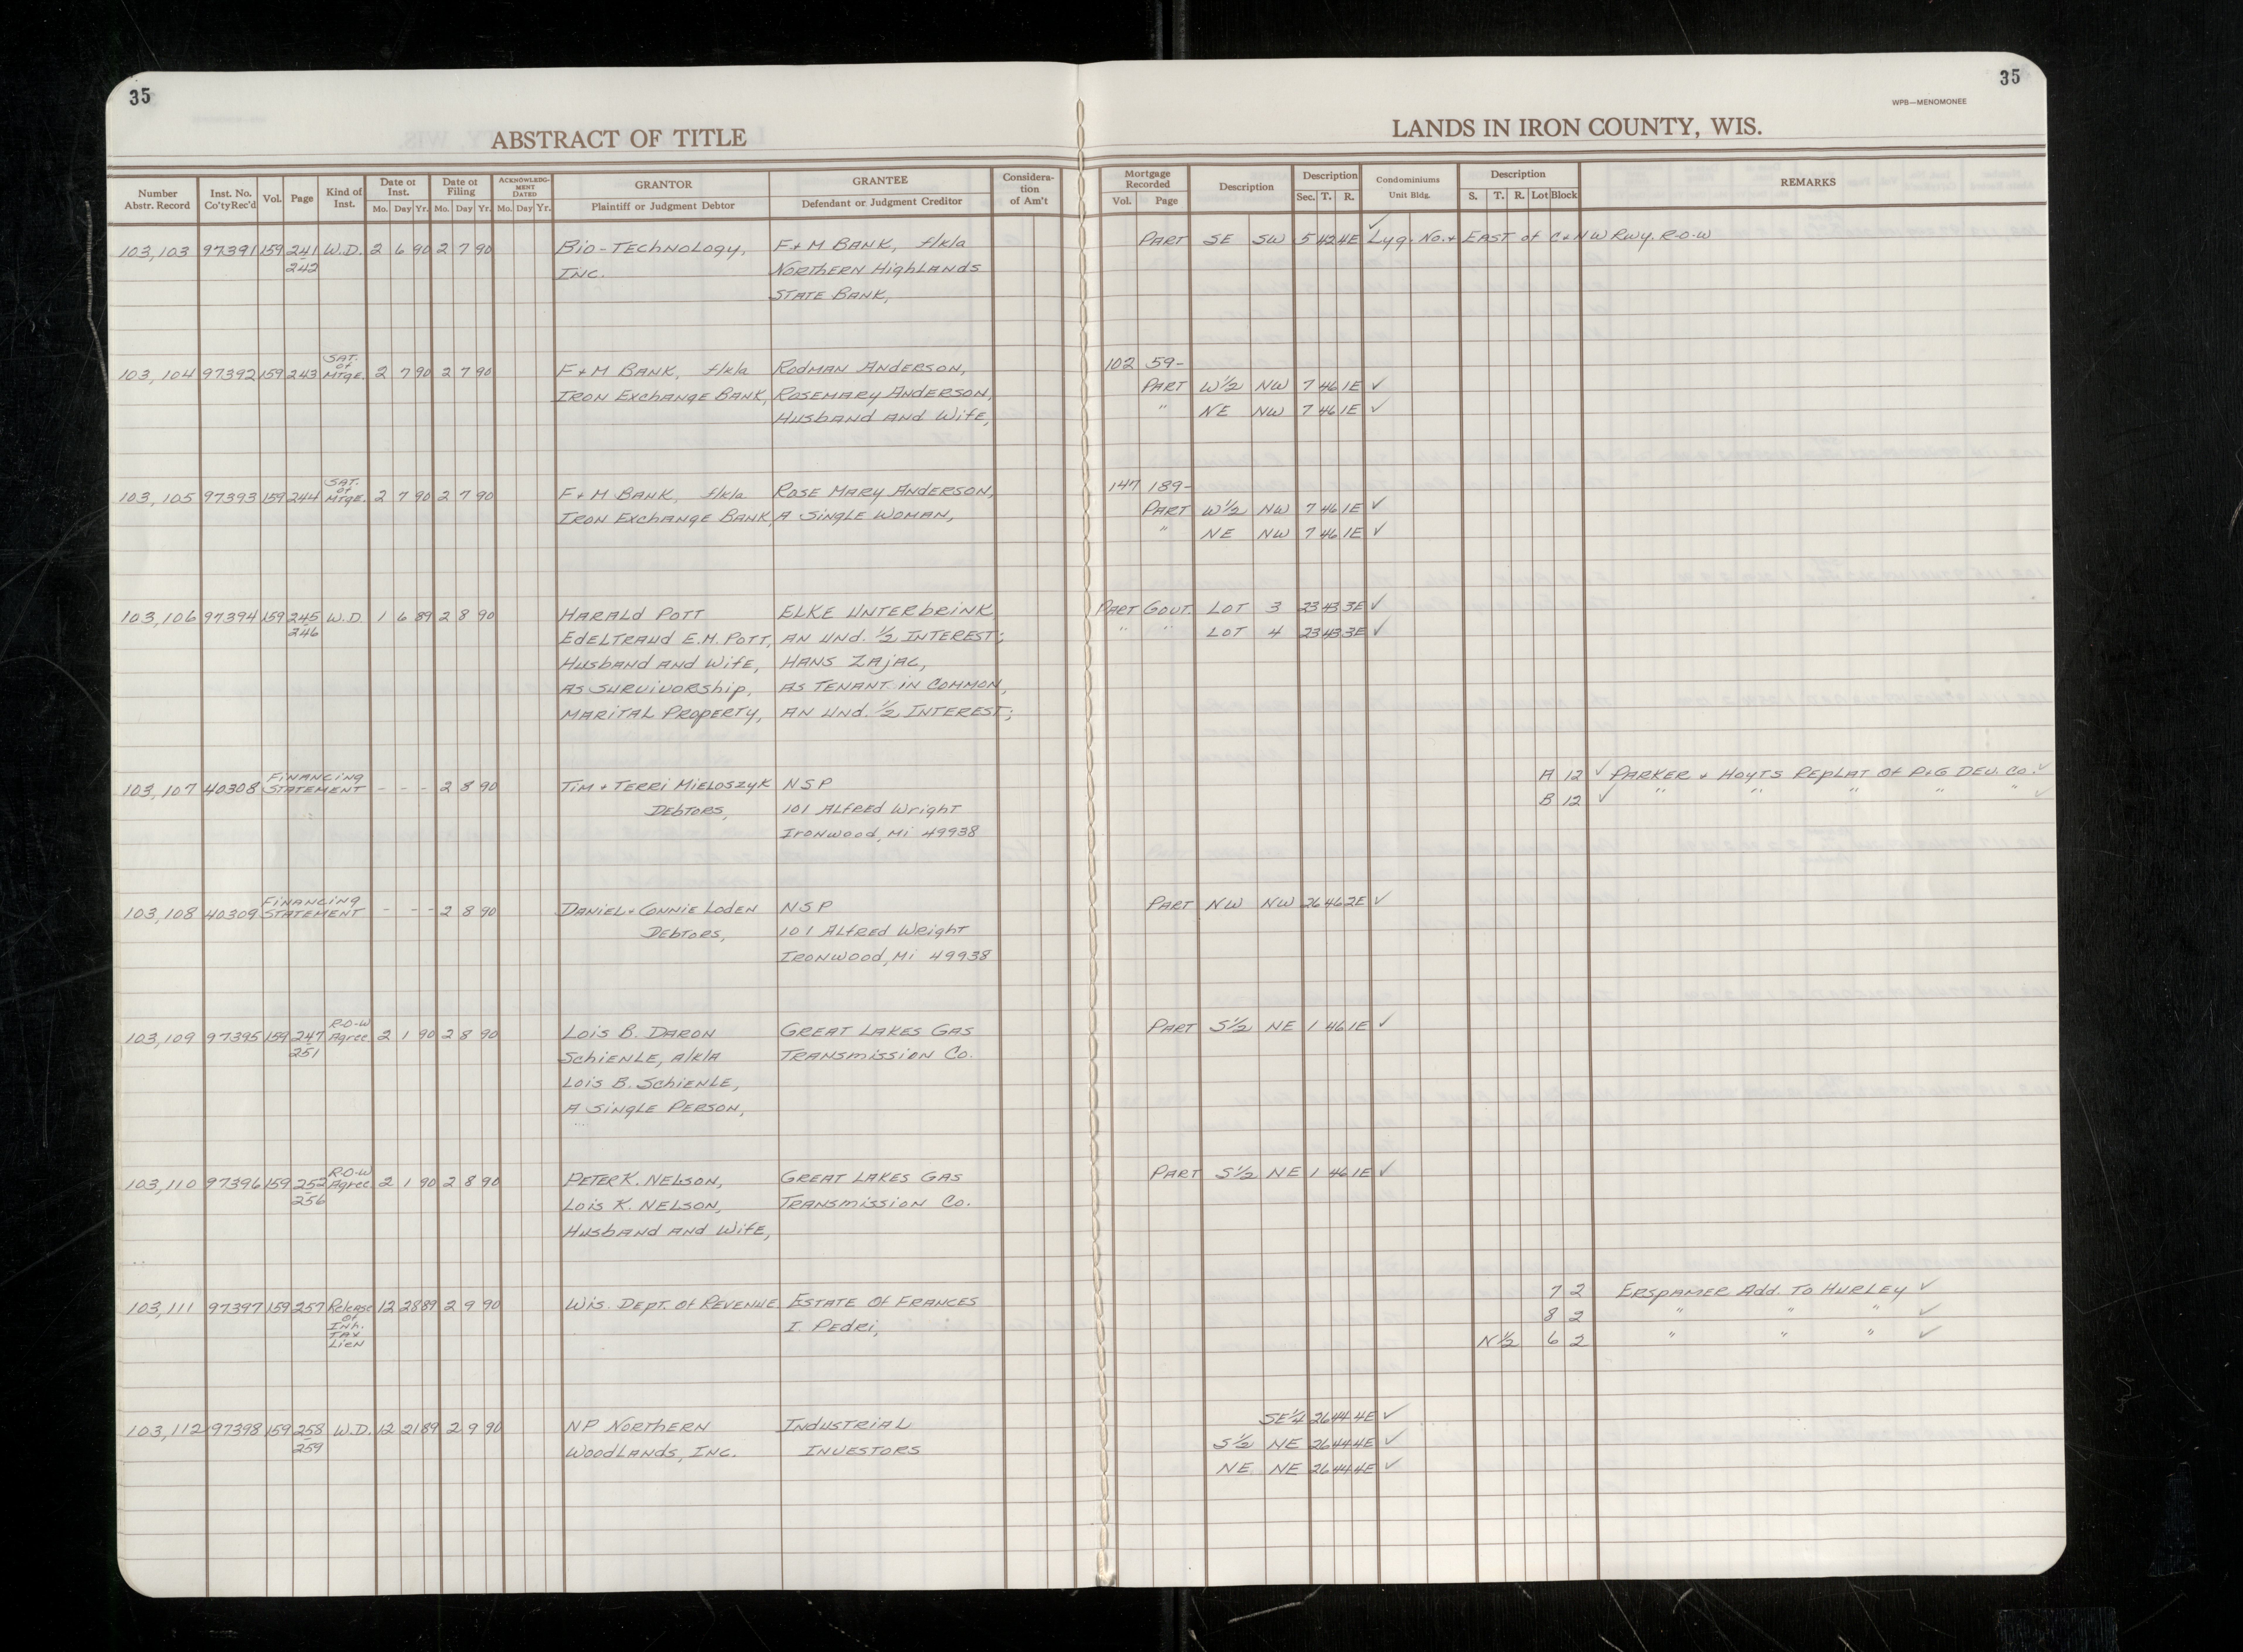 35
35
WPB—MENOMONEE
ABSTRACT OF TITLE
LANDS IN IRON COUNTY, WIS.
Number Abstr. Record | Inst. No. Co'ty Rec'd | Vol. | Page | Kind of Inst. | Date of Inst. Mo. Day Yr. | Date of Filing Mo. Day Yr. | ACKNOWLEDGMENT DATED Mo. Day Yr. | GRANTOR Plaintiff or Judgment Debtor | GRANTEE Defendant or Judgment Creditor | Consideration of Am't | Mortgage Recorded Vol. Page | Description | Description Sec. T. R. | Condominiums Unit Bldg. | Description S. T. R. Lot Block | REMARKS
103,103 97391 159 241 W.D. 2 6 90 2 7 90 Bio-Technology, F+M Bank, f/k/a PART SE SW 5 42 4E Lyg. No. + EAST of C+NW Rwy. R-O-W
242 INC. Northern Highlands
State Bank,
SAT. of
103,104 97392 159 243 Mtge. 2 7 90 2 7 90 F+M Bank, f/k/a Rodman Anderson, 102 59-
Iron Exchange Bank, Rosemary Anderson, PART W½ NW 7 46 1E ✓
Husband and Wife, " NE NW 7 46 1E ✓
SAT. of
103,105 97393 159 244 Mtge. 2 7 90 2 7 90 F+M Bank, f/k/a Rose Mary Anderson, 147 189-
Iron Exchange Bank, A Single Woman, PART W½ NW 7 46 1E ✓
" NE NW 7 46 1E ✓
103,106 97394 159 245 W.D. 1 6 89 2 8 90 Harald Pott Elke Unterbrink PART Gout. LOT 3 23 43 3E ✓
246 Edeltraud E.M. Pott, An Und. ½ Interest; " " LOT 4 23 43 3E ✓
Husband and Wife, Hans Zajac,
As Survivorship, As Tenant in Common,
Marital Property, An Und. ½ Interest;
Financing
103,107 40308 Statement - - - 2 8 90 Tim + Terri Mieloszyk NSP A 12 ✓ Parker + Hoyts Replat of P+G Dev. Co. ✓
Debtors, 101 Alfred Wright B 12 ✓ " " " " " ✓
Ironwood, Mi 49938
Financing
103,108 40309 Statement - - - 2 8 90 Daniel + Connie Loden NSP PART NW NW 26 46 2E ✓
Debtors, 101 Alfred Wright
Ironwood, Mi 49938
R-O-W
103,109 97395 159 247 Agree. 2 1 90 2 8 90 Lois B. Daron Great Lakes Gas PART S½ NE 1 46 1E ✓
251 Schienle, a/k/a Transmission Co.
Lois B. Schienle,
A Single Person,
R-O-W
103,110 97396 159 252 Agree. 2 1 90 2 8 90 Peter K. Nelson, Great Lakes Gas PART S½ NE 1 46 1E ✓
256 Lois K. Nelson, Transmission Co.
Husband and Wife,
103,111 97397 159 257 Release 12 28 89 2 9 90 Wis. Dept. of Revenue Estate of Frances 7 2 Erspamer Add. To Hurley ✓
of I. Pedri, 8 2 " " " ✓
Inh. N½ 6 2 " " " ✓
Tax
Lien
103,112 97398 159 258 W.D. 12 21 89 2 9 90 NP Northern Industrial SE¼ 26 44 4E ✓
259 Woodlands, Inc. Investors S½ NE 26 44 4E ✓
NE NE 26 44 4E ✓